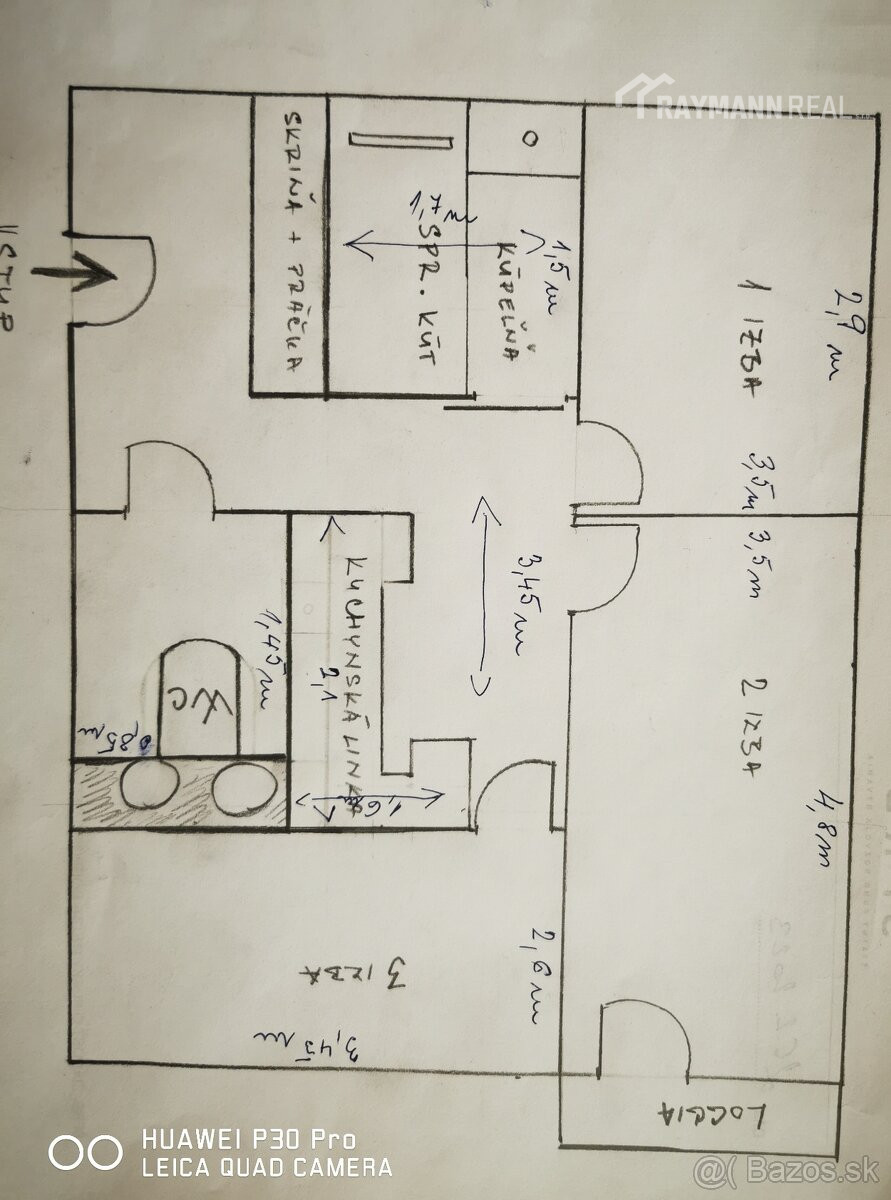 RAYMANN REAL
VSTUP
SKRIŇA + PRÁČKA
1,7 m
SPR. KÚT
1,5 m
KÚPEĽŇA
1 IZBA
2,9 m
3,5 m
3,5 m
2 IZBA
4,8 m
3,45 m
KUCHYNSKÁ LINKA
2,1
1,6
1,45 m
WC
0,85 m
3 IZBA
2,6 m
3,45 m
LOGGIA
HUAWEI P30 Pro
LEICA QUAD CAMERA
@( Bazos.sk